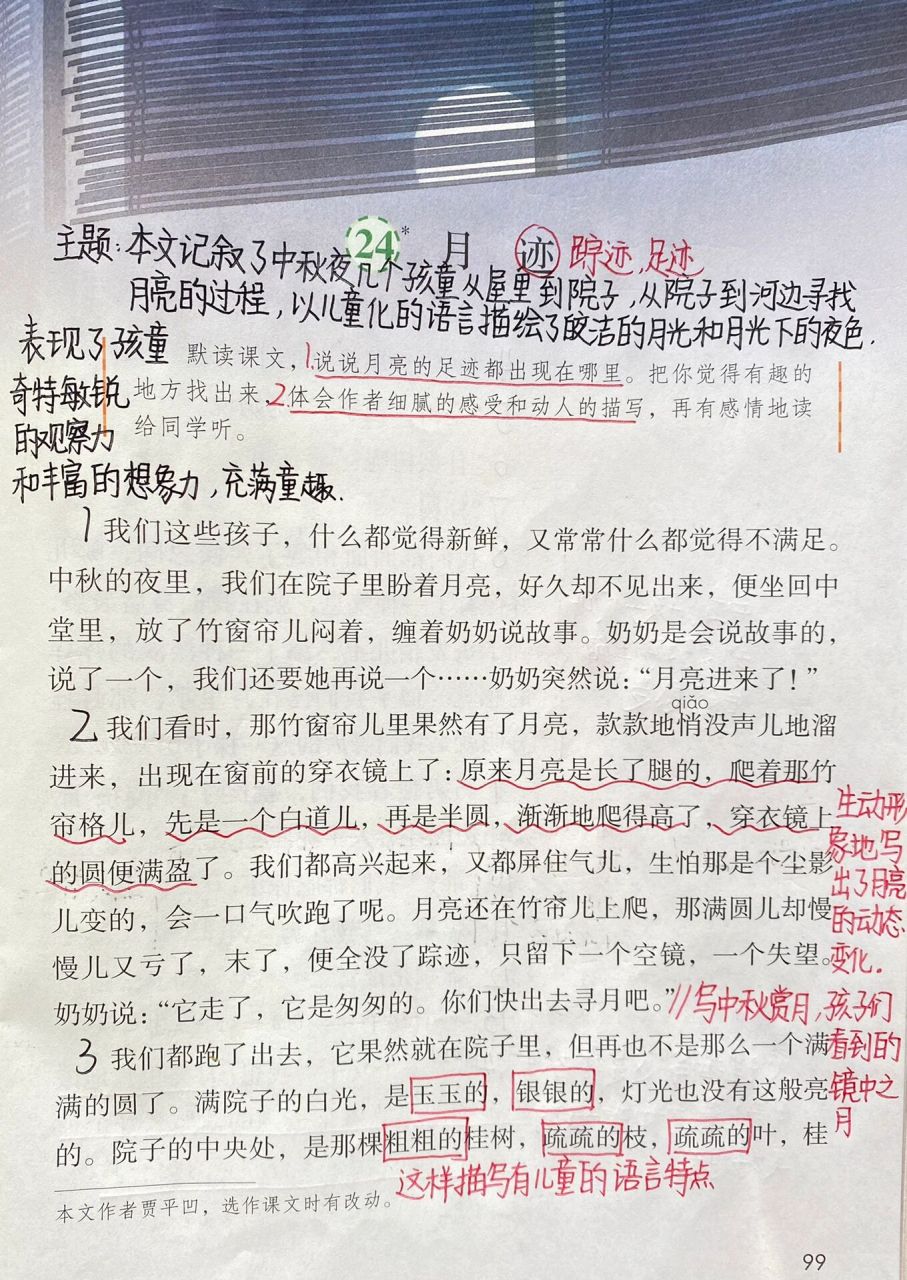 24* 月 迹 踪迹,足迹
主题:本文记叙了中秋夜几个孩童从屋里到院子,从院子到河边寻找
月亮的过程,以儿童化的语言描绘了皎洁的月光和月光下的夜色.
表现了孩童
奇特敏锐
的观察力
和丰富的想象力,充满童趣.
默读课文,1.说说月亮的足迹都出现在哪里。把你觉得有趣的
地方找出来,2.体会作者细腻的感受和动人的描写,再有感情地读
给同学听。
1 我们这些孩子,什么都觉得新鲜,又常常什么都觉得不满足。
中秋的夜里,我们在院子里盼着月亮,好久却不见出来,便坐回中
堂里,放了竹窗帘儿闷着,缠着奶奶说故事。奶奶是会说故事的,
说了一个,我们还要她再说一个……奶奶突然说:“月亮进来了!”
qiǎo
2 我们看时,那竹窗帘儿里果然有了月亮,款款地悄没声儿地溜
进来,出现在窗前的穿衣镜上了:原来月亮是长了腿的,爬着那竹
帘格儿,先是一个白道儿,再是半圆,渐渐地爬得高了,穿衣镜上
的圆便满盈了。我们都高兴起来,又都屏住气儿,生怕那是个尘影
儿变的,会一口气吹跑了呢。月亮还在竹帘儿上爬,那满圆儿却慢
慢儿又亏了,末了,便全没了踪迹,只留下一个空镜,一个失望。
奶奶说:“它走了,它是匆匆的。你们快出去寻月吧。”
生动形
象地写
出了月亮
的动态
变化.
//写中秋赏月,孩子们
看到的
镜中之
月
3 我们都跑了出去,它果然就在院子里,但再也不是那么一个满
满的圆了。满院子的白光,是玉玉的,银银的,灯光也没有这般亮
的。院子的中央处,是那棵粗粗的桂树,疏疏的枝,疏疏的叶,桂
这样描写有儿童的语言特点
本文作者贾平凹,选作课文时有改动。
99